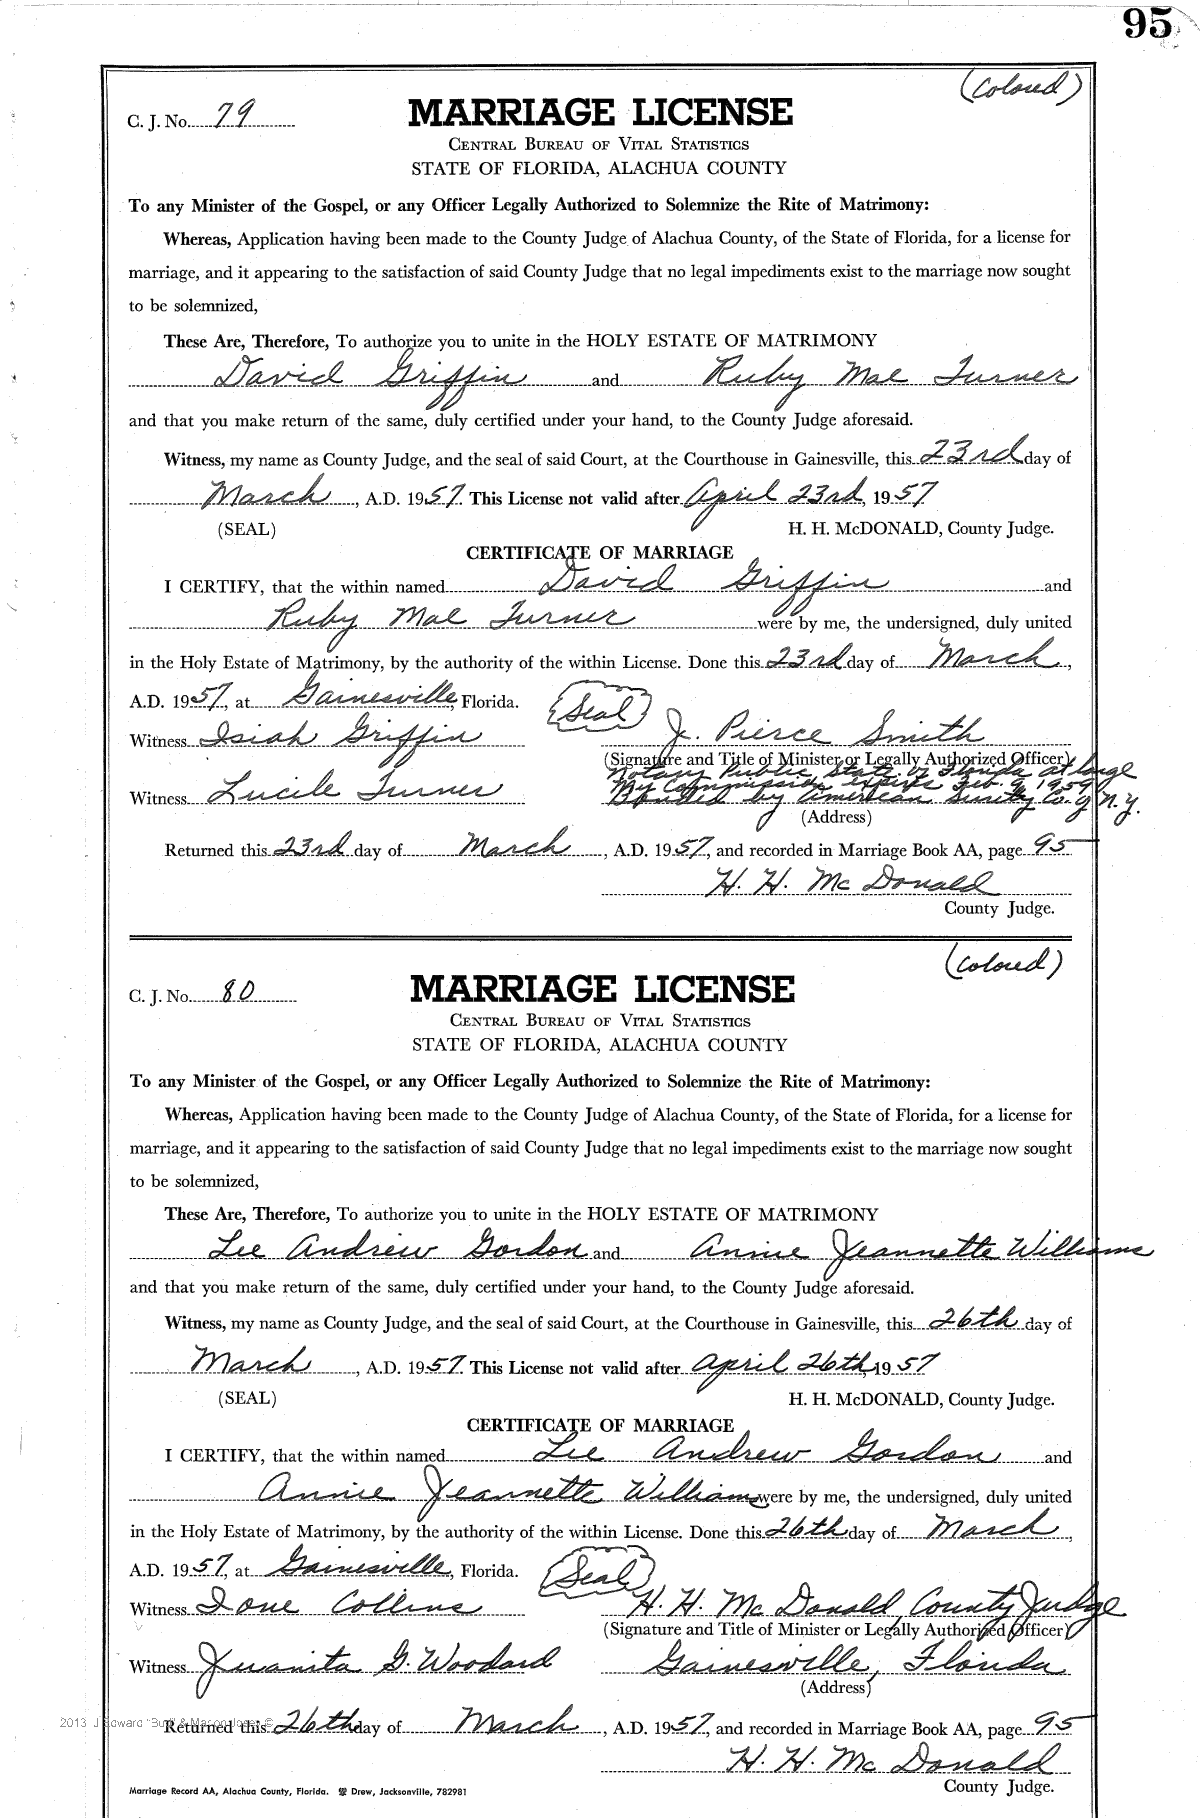 95
(Colored)
C. J. No. 79
MARRIAGE LICENSE
CENTRAL BUREAU OF VITAL STATISTICS
STATE OF FLORIDA, ALACHUA COUNTY
To any Minister of the Gospel, or any Officer Legally Authorized to Solemnize the Rite of Matrimony:
Whereas, Application having been made to the County Judge of Alachua County, of the State of Florida, for a license for
marriage, and it appearing to the satisfaction of said County Judge that no legal impediments exist to the marriage now sought
to be solemnized,
These Are, Therefore, To authorize you to unite in the HOLY ESTATE OF MATRIMONY
David Griffin and Ruby Mae Turner
and that you make return of the same, duly certified under your hand, to the County Judge aforesaid.
Witness, my name as County Judge, and the seal of said Court, at the Courthouse in Gainesville, this 23rd day of
March, A.D. 1957. This License not valid after April 23rd, 1957
(SEAL) H. H. McDONALD, County Judge.
CERTIFICATE OF MARRIAGE
I CERTIFY, that the within named David Griffin and
Ruby Mae Turner were by me, the undersigned, duly united
in the Holy Estate of Matrimony, by the authority of the within License. Done this 23rd day of March,
A.D. 1957, at Gainesville, Florida. (Seal)
Witness Isiah Griffin J. Pierce Smith
(Signature and Title of Minister or Legally Authorized Officer)
Notary Public State of Florida at large
My Commission expires Feb. 9, 1959
Witness Lucile Turner Bonded by American Surety Co. of N.Y.
(Address)
Returned this 23rd day of March, A.D. 1957, and recorded in Marriage Book AA, page 95
H. H. McDonald
County Judge.
(Colored)
C. J. No. 80
MARRIAGE LICENSE
CENTRAL BUREAU OF VITAL STATISTICS
STATE OF FLORIDA, ALACHUA COUNTY
To any Minister of the Gospel, or any Officer Legally Authorized to Solemnize the Rite of Matrimony:
Whereas, Application having been made to the County Judge of Alachua County, of the State of Florida, for a license for
marriage, and it appearing to the satisfaction of said County Judge that no legal impediments exist to the marriage now sought
to be solemnized,
These Are, Therefore, To authorize you to unite in the HOLY ESTATE OF MATRIMONY
Lee Andrew Gordon and Annie Jeannette Williams
and that you make return of the same, duly certified under your hand, to the County Judge aforesaid.
Witness, my name as County Judge, and the seal of said Court, at the Courthouse in Gainesville, this 26th day of
March, A.D. 1957. This License not valid after April 26th, 1957
(SEAL) H. H. McDONALD, County Judge.
CERTIFICATE OF MARRIAGE
I CERTIFY, that the within named Lee Andrew Gordon and
Annie Jeannette Williams were by me, the undersigned, duly united
in the Holy Estate of Matrimony, by the authority of the within License. Done this 26th day of March,
A.D. 1957, at Gainesville, Florida. (Seal)
Witness Ione Collins H. H. McDonald, County Judge
(Signature and Title of Minister or Legally Authorized Officer)
Witness Juanita G. Woodard Gainesville, Florida
(Address)
Returned this 26th day of March, A.D. 1957, and recorded in Marriage Book AA, page 95
H. H. McDonald
County Judge.
Marriage Record AA, Alachua County, Florida. Drew, Jacksonville, 782981